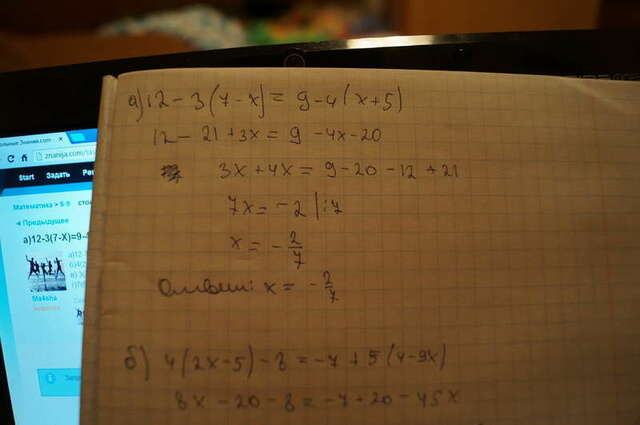 а) 12 - 3(7-x) = 9-4(x+5)
12 - 21+3x = 9 -4x-20
3x+4x = 9-20-12+21
7x = -2 |:7
x = -2/7
Ответ: x = -2/7
б) 4(2x-5)-8 = -7+5(4-9x)
8x -20-8 = -7+20-45x
znanija.com/
Start Задать
Математика > 5-9
Предыдущее
а)12-3(7-X)=9-